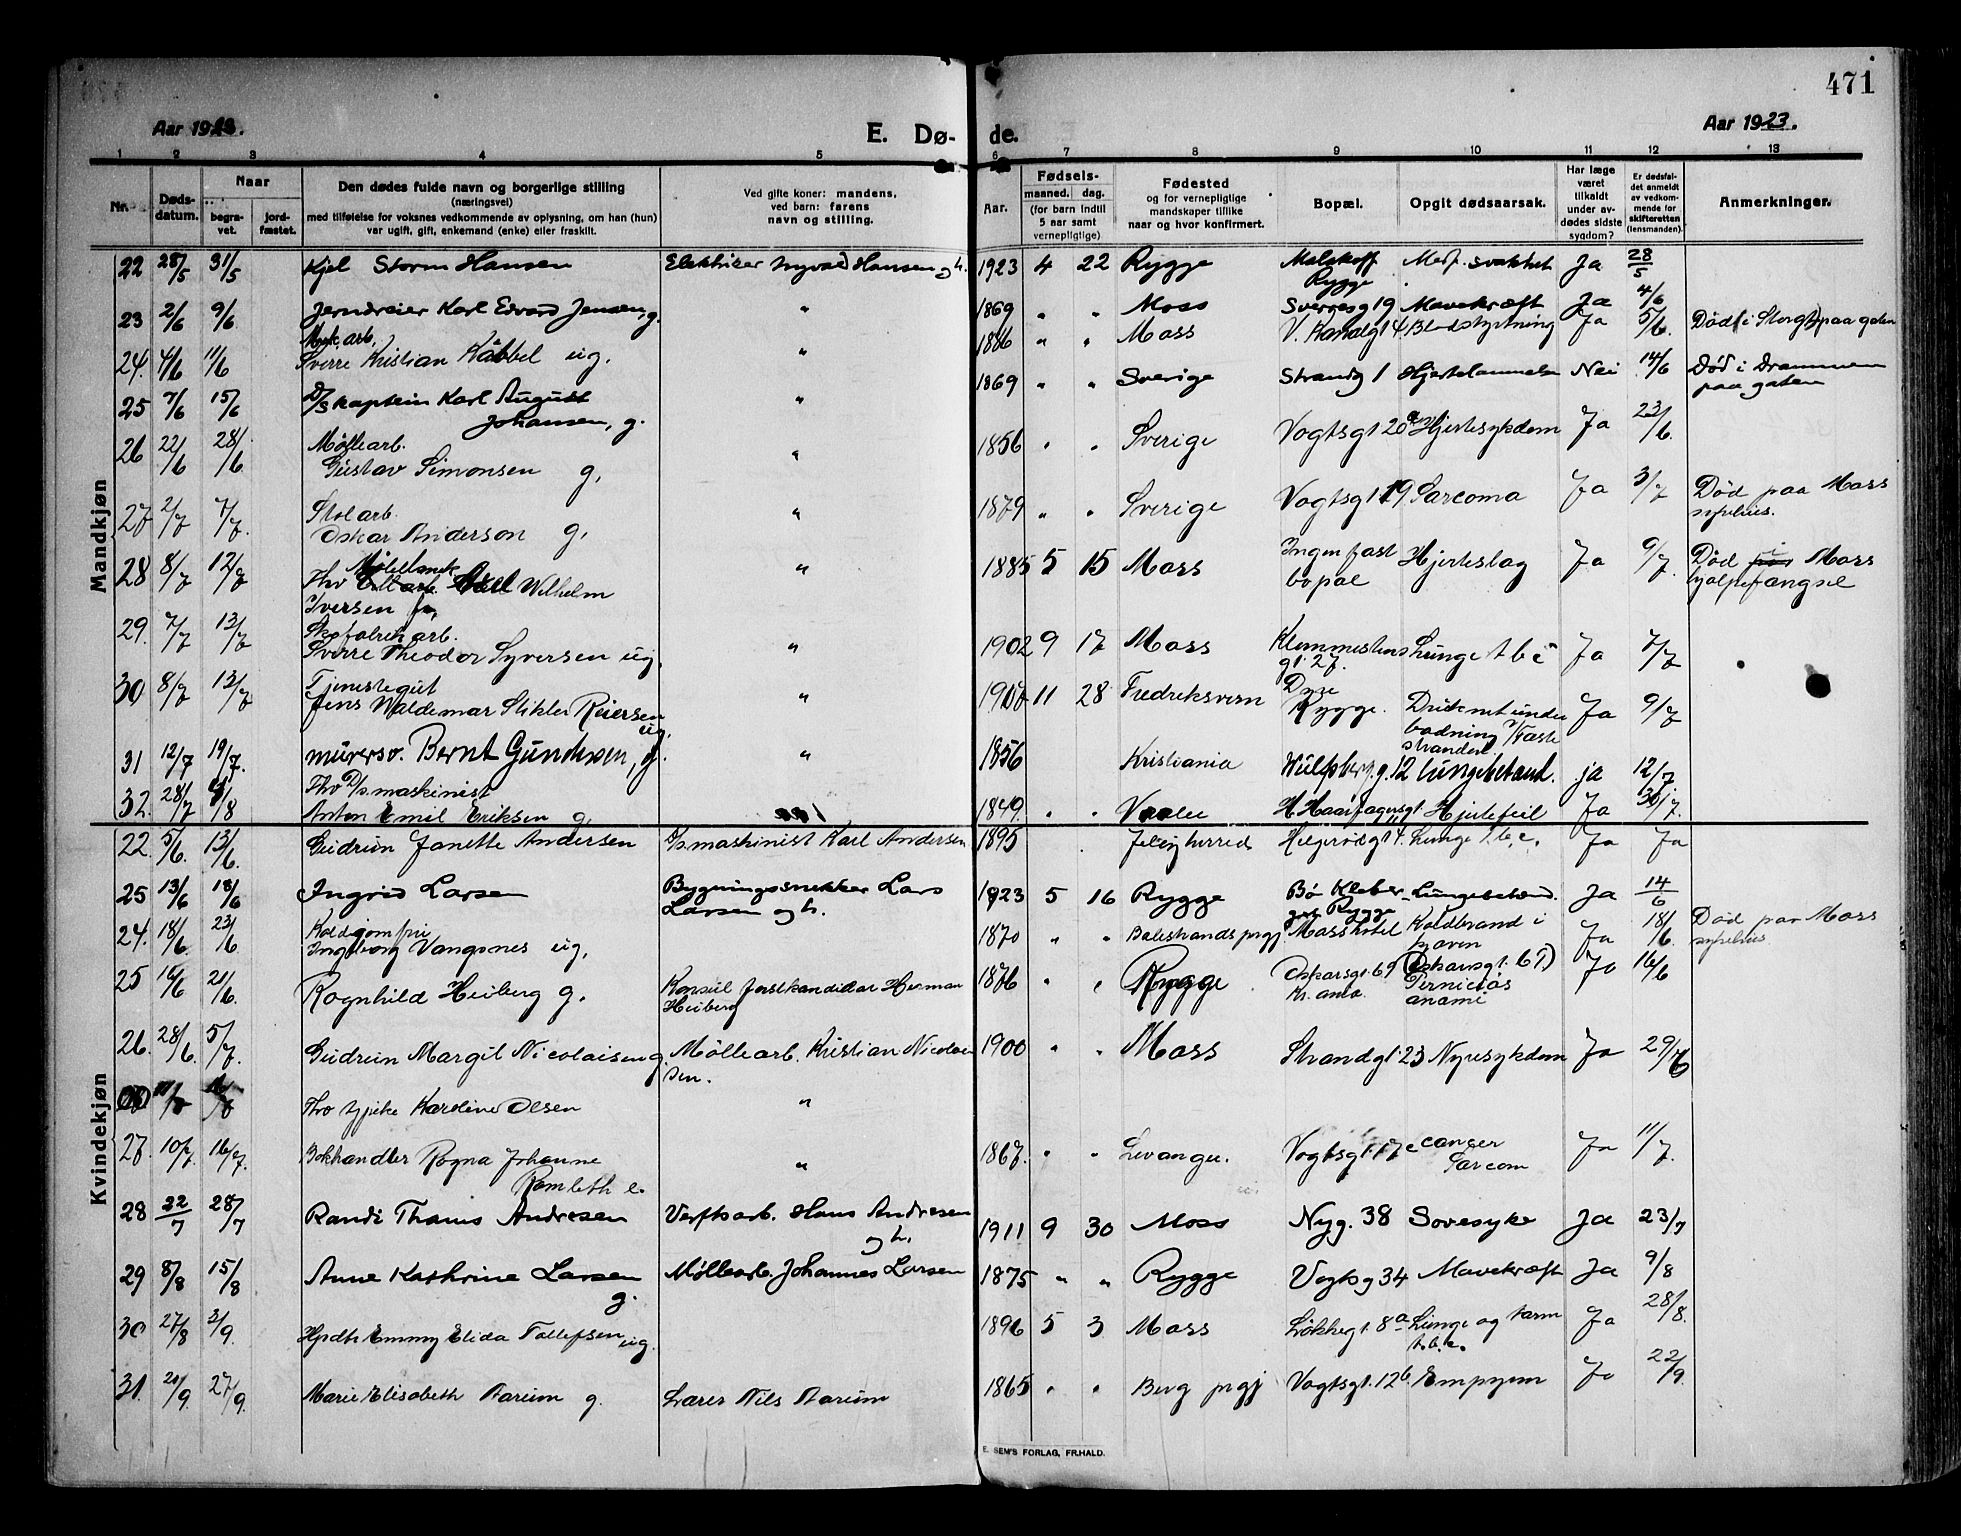 471
Aar 1923.
E. Dø-
de.
Aar 1923.
1 2 3 4 5 6 7 8 9 10 11 12 13
Nr.
Døds-
datum.
Naar
begra-
vet.
jord-
fæstet.
Den dødes fulde navn og borgerlige stilling
(næringsvei)
med tilføielse for voksnes vedkommende av oplysning, om han (hun)
var ugift, gift, enkemand (enke) eller fraskilt.
Ved gifte koner: mandens,
ved barn: farens
navn og stilling.
Aar.
Fødsels-
maaned. dag.
(for barn indtil
5 aar samt
vernepligtige)
Fødested
og for vernepligtige
mandskaper tillike
naar og hvor konfirmert.
Bopæl.
Opgit dødsaarsak.
Har læge
været
tilkaldt
under av-
dødes sidste
sygdom?
Er dødsfal-
det anmeldt
av vedkom-
mende for
skifteretten
(lensmanden).
Anmerkninger.
Mandkjøn
22 28/5 31/5 Kjel Storm Hansen Elektriker Hansen og h. 1923 4 22 Rygge Malakoff Rygge Medf. svakhet Ja 28/5
23 2/6 9/6 Jerndreier Karl Edvard Jensen, g. " 1869 " " Moss Sverresg 19 Mavekræft Ja 4/6
24. 4/6 11/6 Sverre Kristian Kåbbel ug. " 1886 " " Moss V. Kanalgt 4. Blodstyrtning Ja 5/6. Død i Storgt paa gaten
25 7/6 15/6 D/S kaptein Karl August Johansen, g. " 1869 " " Sverige Strandg 1 Hjertelammelse Nei 14/6 Død i Drammen paa gaten
26 22/6 28/6. Møllearb. Gustav Simonsen g. " 1856 " " Sverige Vogtsgt 20 a Hjertesykdom Ja 23/6.
27 2/7 7/7. Stolarb. Oskar Anderson g. " 1879 " " Sverige Vogtsgt 19 Sarcoma Ja 3/7 Død paa Moss sykehus.
28 8/7 12/7 Wilhelm Iversen " 1885 5 15 Moss Ingen fast bopæl Hjerteslag Ja 9/7. Død i Moss hjælpefængsel
29. 7/7 13/7 Skofabrikarb. Sverre Theodor Syversen ug. " 1902 9 17 Moss Klommestens gt. 27. Lunge tbc Ja 7/7
30 8/7 13/7 Tjenestegut Jens Waldemar Stikler Reiersen ug. " 1907 11 28 Fredriksvern Dyre Rygge. Druknet under badning v/ stranden Ja 9/7
31 12/7 19/7. murersv. Bernt Gundersen, g. " 1856 Kristiania Wulfsberg.g. 12 lungebetænd. ja 12/7
32. 28/7 /8 Fhv D/s.maskinist Anton Emil Eriksen g. 1849. " " Vaaler H. Haarfagersgt. Hjertefeil Ja 30/7.
Kvindekjøn
22. 5/6. 13/6. Gudrun Janette Andersen D/s. maskinist Karl Andersen 1895 Jeløy herred Helgerødgt 4. Lunge t.b.c. Ja Ja
25 13/6 18/6 Ingrid Larsen Bygningssnekker Lars Larsen og h. 1923 5 16 Rygge Bø Rygge Lungebetænd. Ja 14/6
24. 18/6. 23/6 Koldjomfru Ingeborg Vangsnes ug. 1870 " " Balestrands prgj. Moss hotel Koldbrand i Ja 18/6. Død paa Moss sykehus
25 16/6 21/6. Ragnhild Heiberg g. Konsul forstkandidat Herman Heiberg 1876 " " Rygge Oskarsgt. 69 Kr.ania. (Oskarsgt. 67) Perniciøs anæmi Ja 16/6
26. 28/6. 5/7. Gudrun Margit Nicolaisen g. Møllearb. Kristian Nicolaisen. 1900 " " Moss Strandgt. 23 Nyresykdom Ja 29/6
Fhv Karoline Olsen "
27. 10/7. 16/7. Bokhandler Ragna Johanne Romleth e. " 1867. " " Levanger. Vogtsgt. 17 c cancer Sarcom Ja 11/7.
28 22/7 28/7 Randi Thanis Andresen Verftsarb. Hans Andresen og h. 1911 9 30 Moss Nyg. 38 Sovesyke Ja 23/7
29 8/8 15/8 Anne Kathrine Larsen g. Møllearb. Johannes Larsen 1875 " " Rygge Vogtsg 34 Mavekræft Ja 9/8
30 27/8 3/9. Hpdtr Emmy Elida Tollefsen, ug. 1896 5 3 Moss Løkkegt. 8a Lunge og tarm t.b.c. Ja 28/8.
31. 21/9. 27/9. Marie Elisabeth Barum g. Lærer Nils Barum 1865 " " Berg prgj Vogtsgt. 12b. Empyem Ja 22/9.
E. SEM'S FORLAG, FR.HALD.